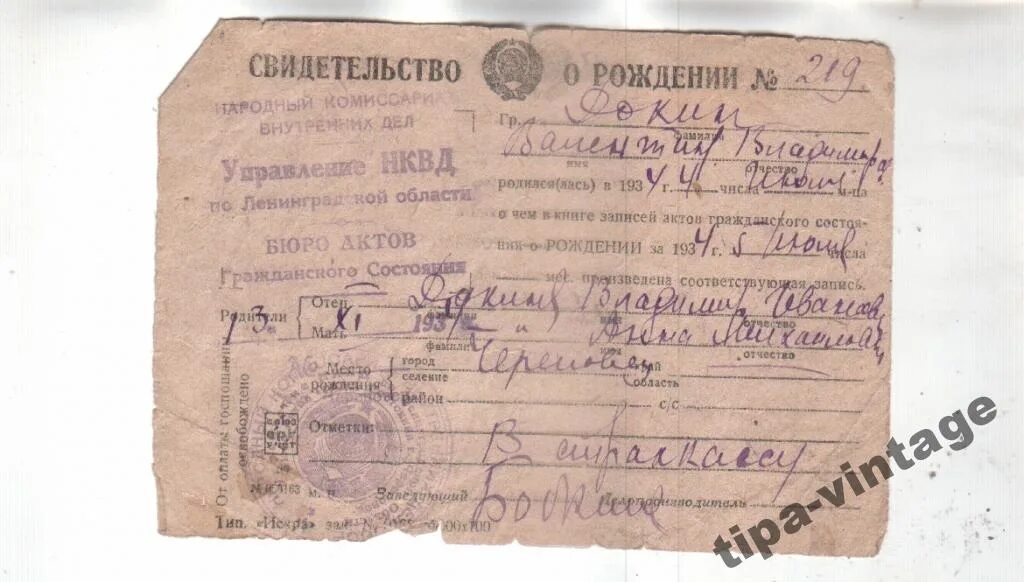 СВИДЕТЕЛЬСТВО О РОЖДЕНИИ № 219
НАРОДНЫЙ КОМИССАРИАТ
ВНУТРЕННИХ ДЕЛ
Управление НКВД
по Ленинградской области
БЮРО АКТОВ
Гражданского Состояния
Гр. Докин
фамилия
Валентин Владимир
имя отчество
родился(лась) в 1934 г. 4 числа июля м-ца
о чем в книге записей актов гражданского состоя-
ния о РОЖДЕНИИ за 1934 г. 5 июля числа
мес. произведена соответствующая запись.
Родители
Отец Докин Владимир Иванович
фамилия имя отчество
Мать " Анна Михайловна
фамилия отчество
13 XI 193
Место рождения
город Череповец край
селение область
район с/с
Отметки: В страхкассу
От оплаты госпошлины
освобождено
м. п. Заведующий Делопроизводитель
Тип. «Искра» зак. №
tipa-vintage